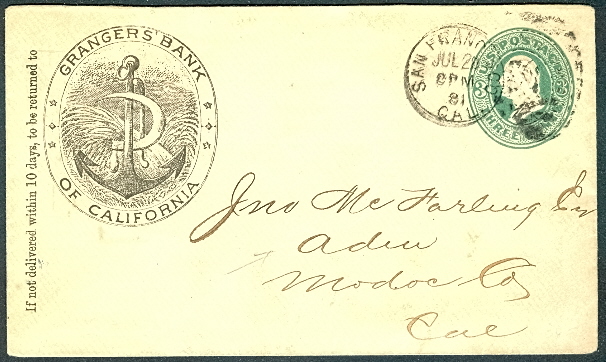 If not delivered within 10 days, to be returned to
GRANGERS' BANK
OF CALIFORNIA
SAN FRANC
JUL 2
8 PM
81
CAL.
U.S. POSTAGE
THREE
Jno Mc Farling Esq
Adin
Modoc Co
Cal